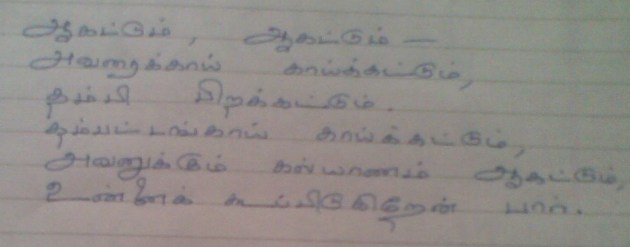 ஆகட்டும், ஆகட்டும் —
அவரைக்காய் காய்க்கட்டும்,
தம்பி பிறக்கட்டும்.
தம்பட்டங்காய் காய்க்கட்டும்,
அவனுக்கும் கல்யாணம் ஆகட்டும்,
உன்னைக் கூப்பிடுகிறேன் பார்.